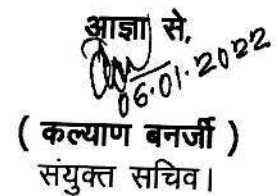 आज्ञा से,
06.01.2022
( कल्याण बनर्जी )
संयुक्त सचिव।